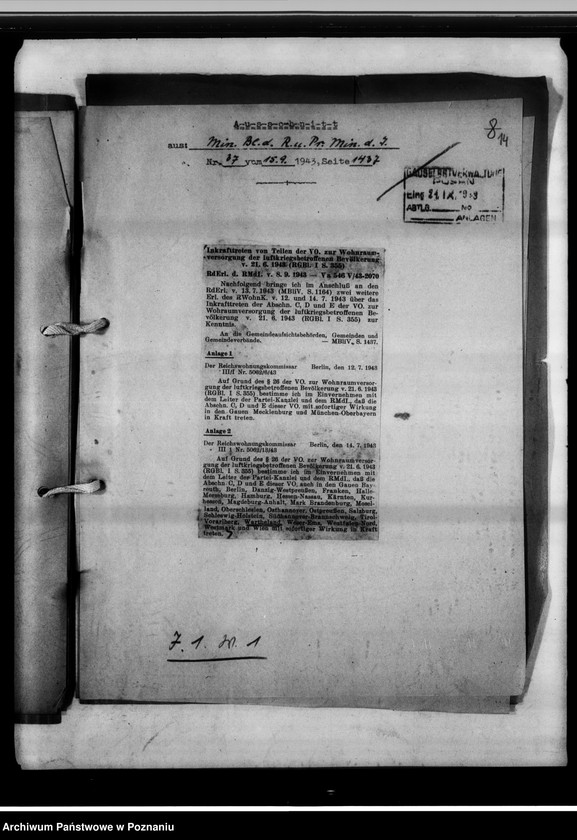 Ausschnitt
8
14
aus: Min. Bl. d. R. u. Pr. Min. d. I.
Nr. 37 vom 15.9. 1943, Seite 1437
POSEN
Eing 21. IX. 1943
ABTLG. NO
ANLAGEN
Inkrafttreten von Teilen der VO. zur Wohnraum-
versorgung der luftkriegsbetroffenen Bevölkerung
v. 21. 6. 1943 (RGBl. I S. 355)
RdErl. d. RMdI. v. 8. 9. 1943 — Va 546 V/43-2070
Nachfolgend bringe ich im Anschluß an den
RdErl. v. 13. 7. 1943 (MBliV. S. 1164) zwei weitere
Erl. des RWohnK. v. 12. und 14. 7. 1943 über das
Inkrafttreten der Abschn. C, D und E der VO. zur
Wohnraumversorgung der luftkriegsbetroffenen Be-
völkerung v. 21. 6. 1943 (RGBl. I S. 355) zur
Kenntnis.
An die Gemeindeaufsichtsbehörden, Gemeinden und
Gemeindeverbände. — MBliV. S. 1437.
Anlage 1
Der Reichswohnungskommissar Berlin, den 12. 7. 1943
III/I Nr. 5062/6/43
Auf Grund des § 26 der VO. zur Wohnraumversor-
gung der luftkriegsbetroffenen Bevölkerung v. 21. 6. 1943
(RGBl. I S. 355) bestimme ich im Einvernehmen mit
dem Leiter der Partei-Kanzlei und dem RMdI., daß die
Abschn. C, D und E dieser VO. mit sofortiger Wirkung
in den Gauen Mecklenburg und München-Oberbayern
in Kraft treten.
Anlage 2
Der Reichswohnungskommissar Berlin, den 14. 7. 1943
III 1 Nr. 5062/13/43
Auf Grund des § 26 der VO. zur Wohnraumversor-
gung der luftkriegsbetroffenen Bevölkerung v. 21. 6. 1943
(RGBl. I S. 355) bestimme ich im Einvernehmen mit
dem Leiter der Partei-Kanzlei und dem RMdI., daß die
Abschn. C, D und E dieser VO. auch in den Gauen Bay-
reuth, Berlin, Danzig-Westpreußen, Franken, Halle-
Merseburg, Hamburg, Hessen-Nassau, Kärnten, Kur-
hessen, Magdeburg-Anhalt, Mark Brandenburg, Mosel-
land, Oberschlesien, Osthannover, Ostpreußen, Salzburg,
Schleswig-Holstein, Südhannover-Braunschweig, Tirol-
Vorarlberg, Wartheland, Weser-Ems, Westfalen-Nord,
Westmark und Wien mit sofortiger Wirkung in Kraft
treten.
J. 1. W. 1
Archiwum Państwowe w Poznaniu